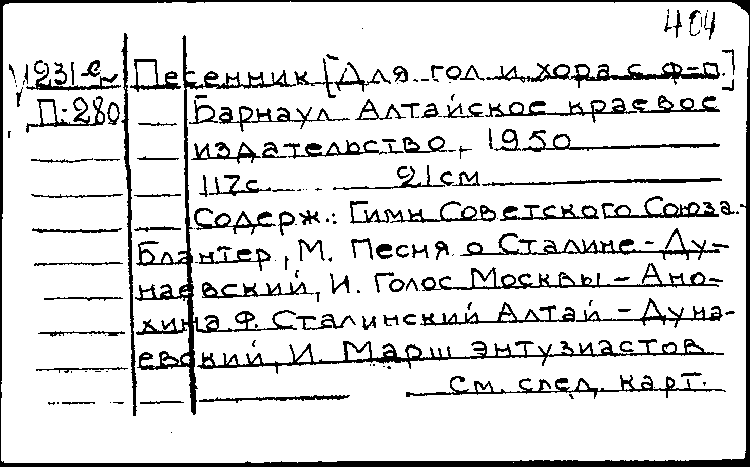 404
У231-е Песенник [Для гол и хора с ф-п.]
П:280 Барнаул Алтайское краевое
издательство, 1950
117с. 21см
Содерж.: Гимн Советского Союза.-
Блантер, М. Песня о Сталине - Ду-
наевский, И. Голос Москвы - Ано-
хина Ф. Сталинский Алтай - Дуна-
евский, И. Марш энтузиастов
См. след. карт.